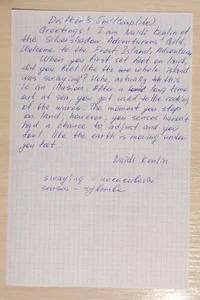 Drifter's End (complete)
Greetings! I am Naidi Kenlin of
the Silvershadow Adventurers' Guild.
Welcome to the Frost Island, Adventurer
When you first set foot on land,
did you feel like the whole island
was "swaying"? Haha, actually this
is an illusion. After a long time
out at sea, you get used to the rocking
of the waves. The moment you step
on land, however, you senses haven't
had a chance to adjust and you
feel like the earth is moving under
you feet.
Naidi Kenlin
swaying -
senses -